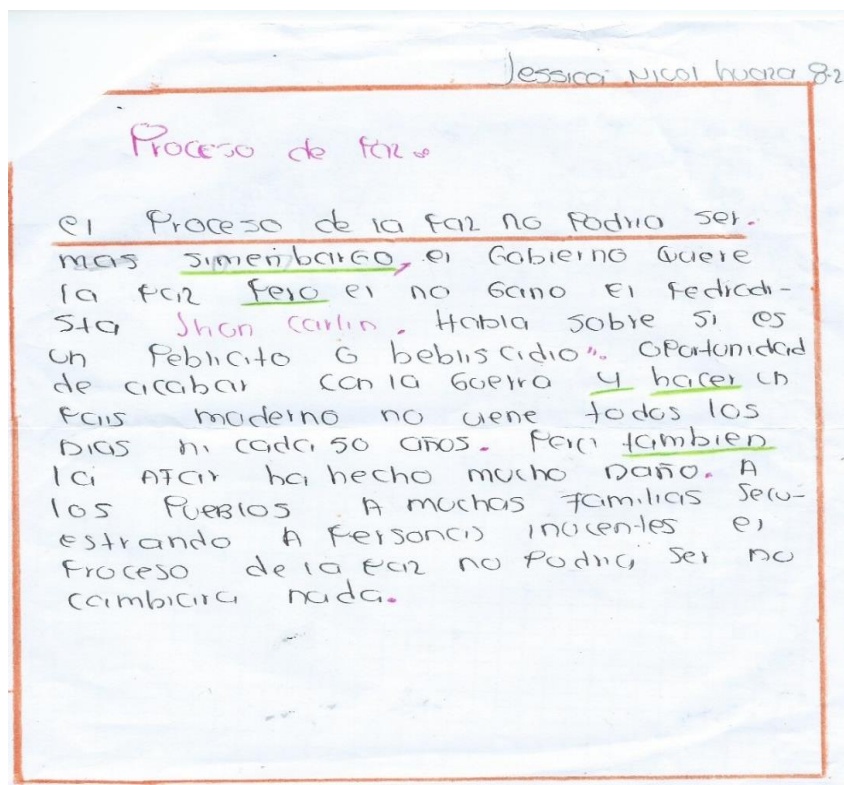 Jessica Nicol huaza 8-2
Proceso de Paz.
el Proceso de la Paz no Podria ser.
mas simembargo, el Gobierno Quere
la paz Pero el no Gano El Pediodi-
sta Jhon Carlin. Habla sobre si es
un Peblicito o bebliscidio". OPortunidad
de acabar con la Guerra y hacer un
Pais moderno no viene todos los
Dias ni cada 50 años. Pero tambien
la AFar ha hecho mucho Daño. A
los PueBlos A muchas Familias Secu-
estrando A Personas inocentes el
Proceso de la Paz no Podria ser no
cambiara nada.